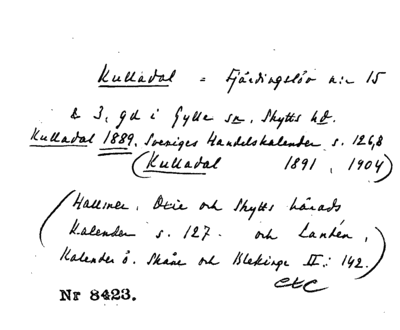 Kulladal = Fjärdingslöv n:r 15
& 3, gd i Gylle sn, Skytts hd.
Kulladal 1889, Sveriges Handelskalender s. 1268
(Kulladal 1891, 1904)
(Hallner, Oxie och Skytts härads
Kalender s. 127. och Landén,
Kalender ö. Skåne och Blekinge II: 142.)
etc
Nr 8423.